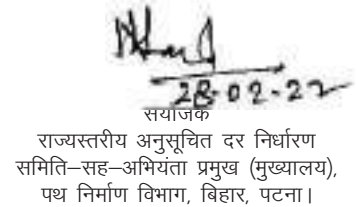 28-02-22
संयोजक
राज्यस्तरीय अनुसूचित दर निर्धारण
समिति–सह–अभियंता प्रमुख (मुख्यालय),
पथ निर्माण विभाग, बिहार, पटना।